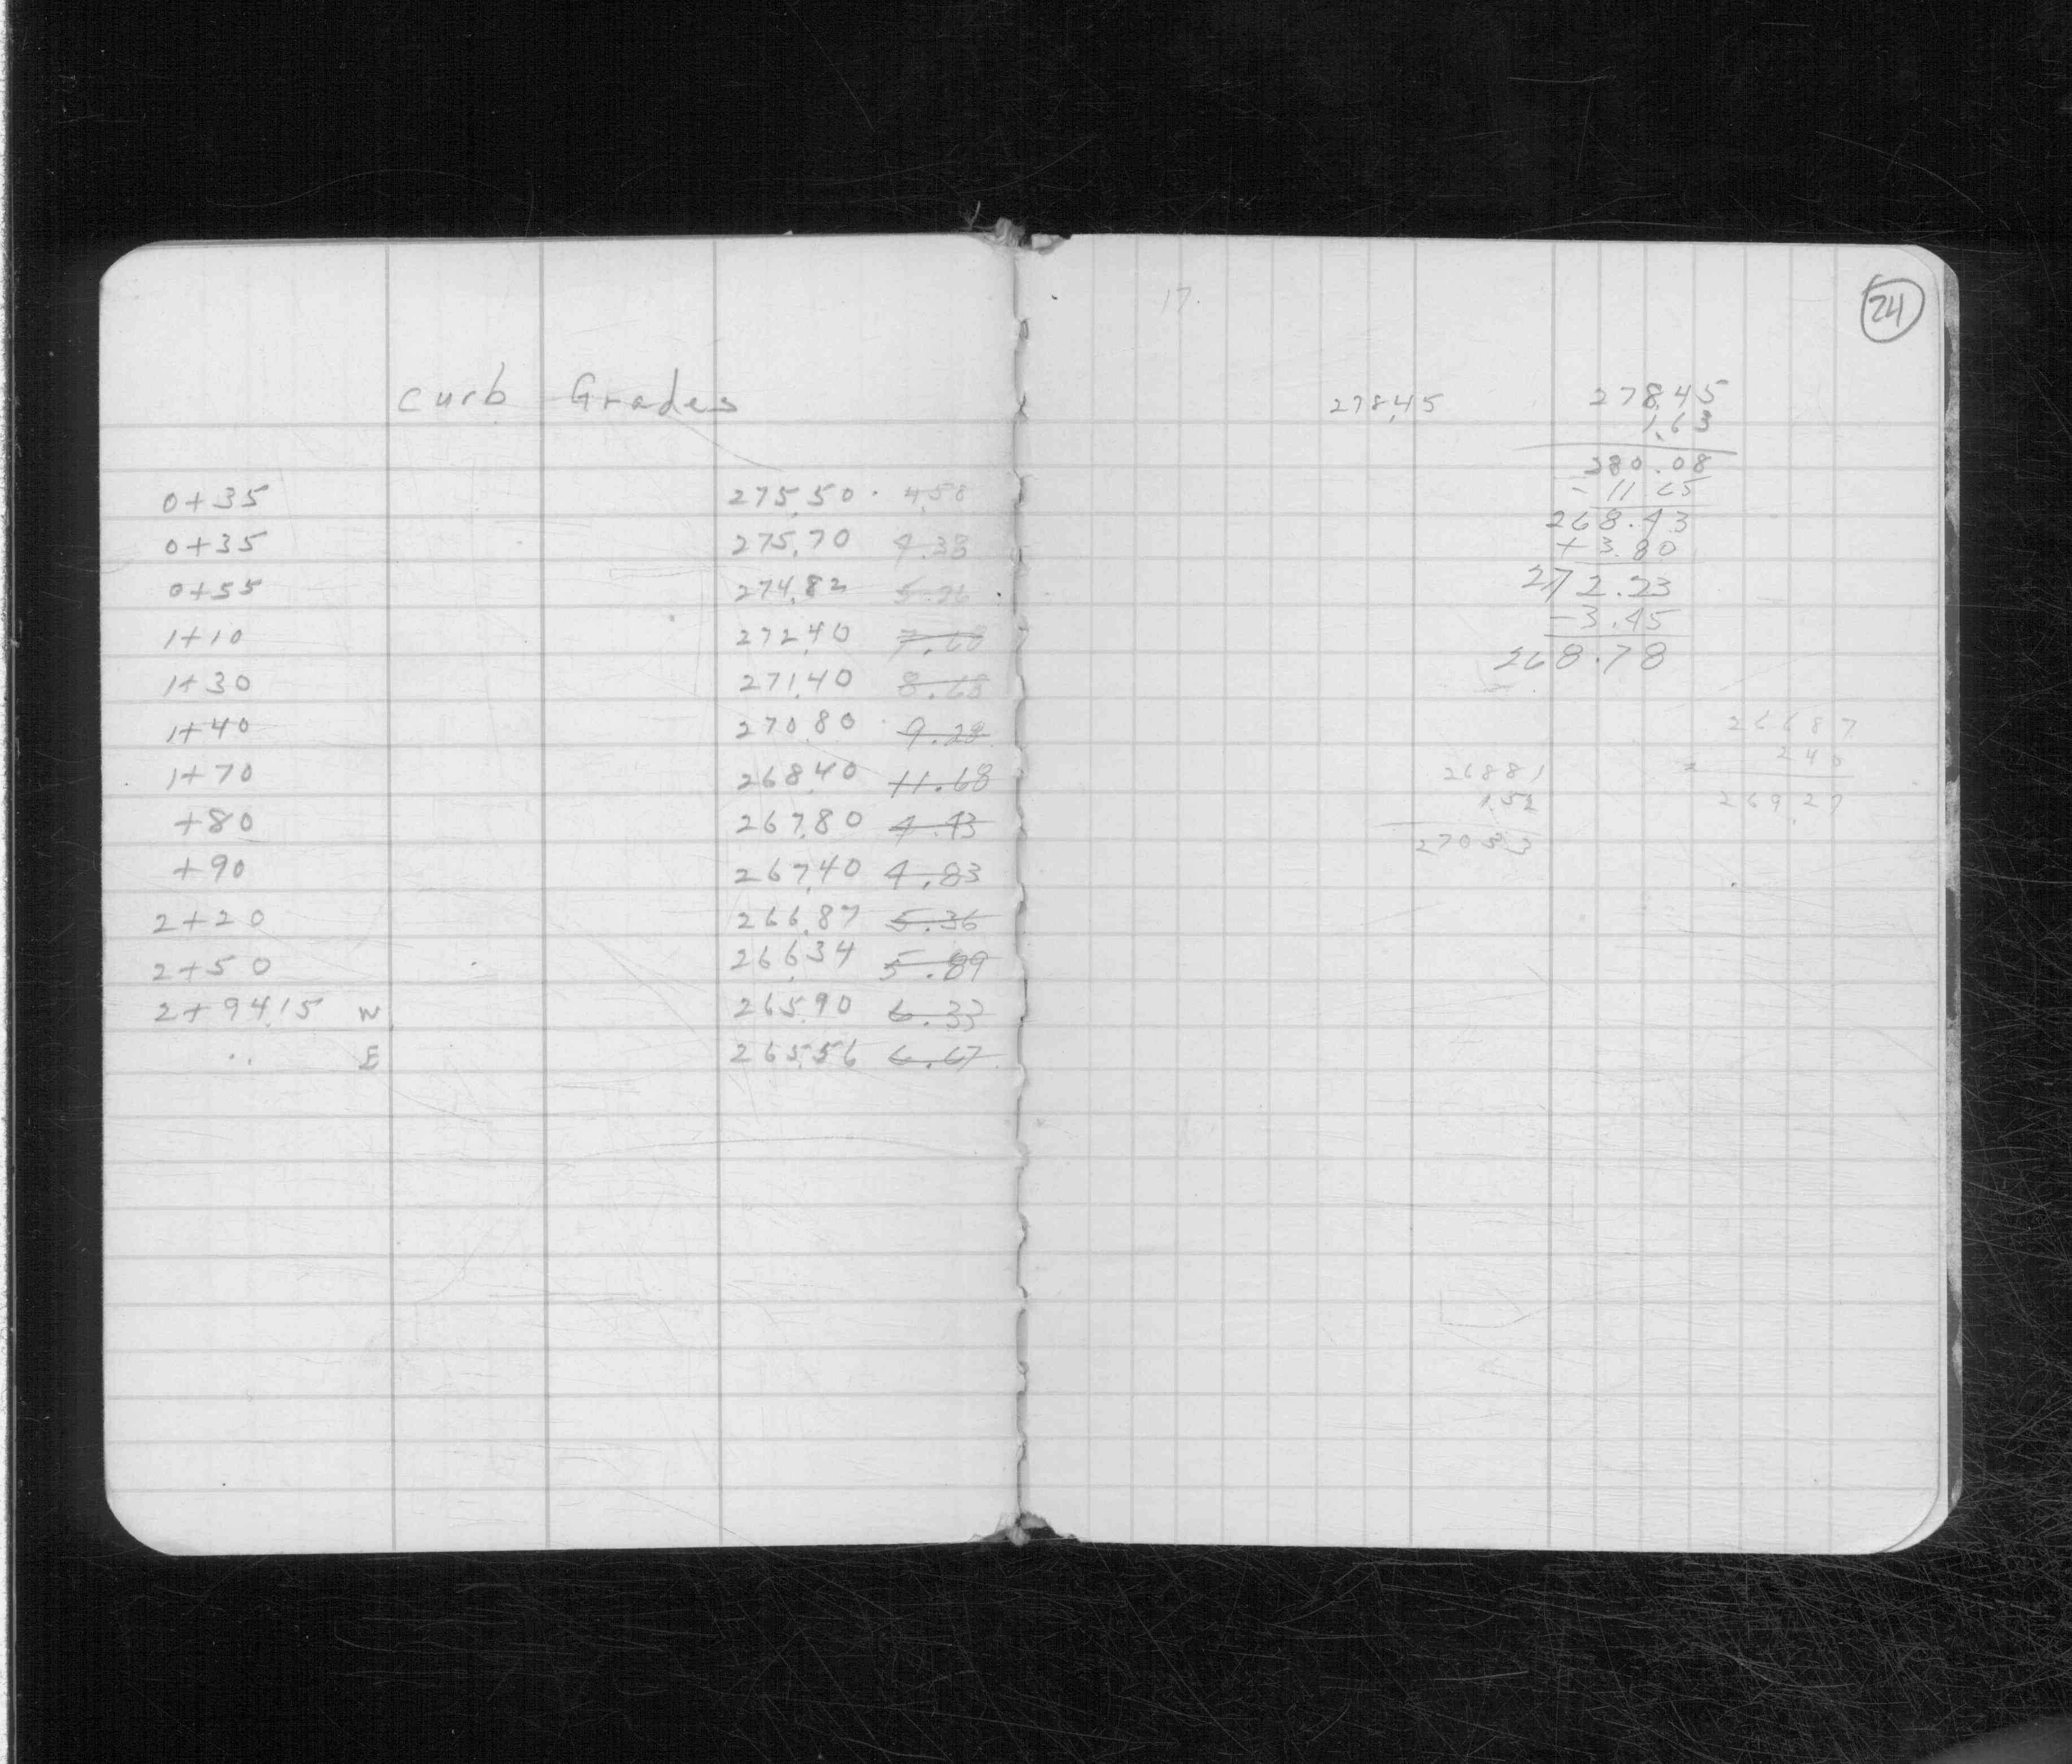 curb Grades
0+35 275.50 4.58
0+35 275.70 4.38
0+55 274.82 5.26
1+10 272.40 7.68
1+30 271.40 8.68
1+40 270.80 9.28
1+70 268.40 11.68
+80 267.80 4.43
+90 267.40 4.83
2+20 266.87 5.36
2+50 266.34 5.89
2+94.15 W 265.90 6.33
" E 265.56 6.67
17
24
278.45
278.45
1.63
280.08
- 11 65
268.43
+ 3.80
272.23
-3.45
268.78
26687
240
269.27
26881
1.52
27033